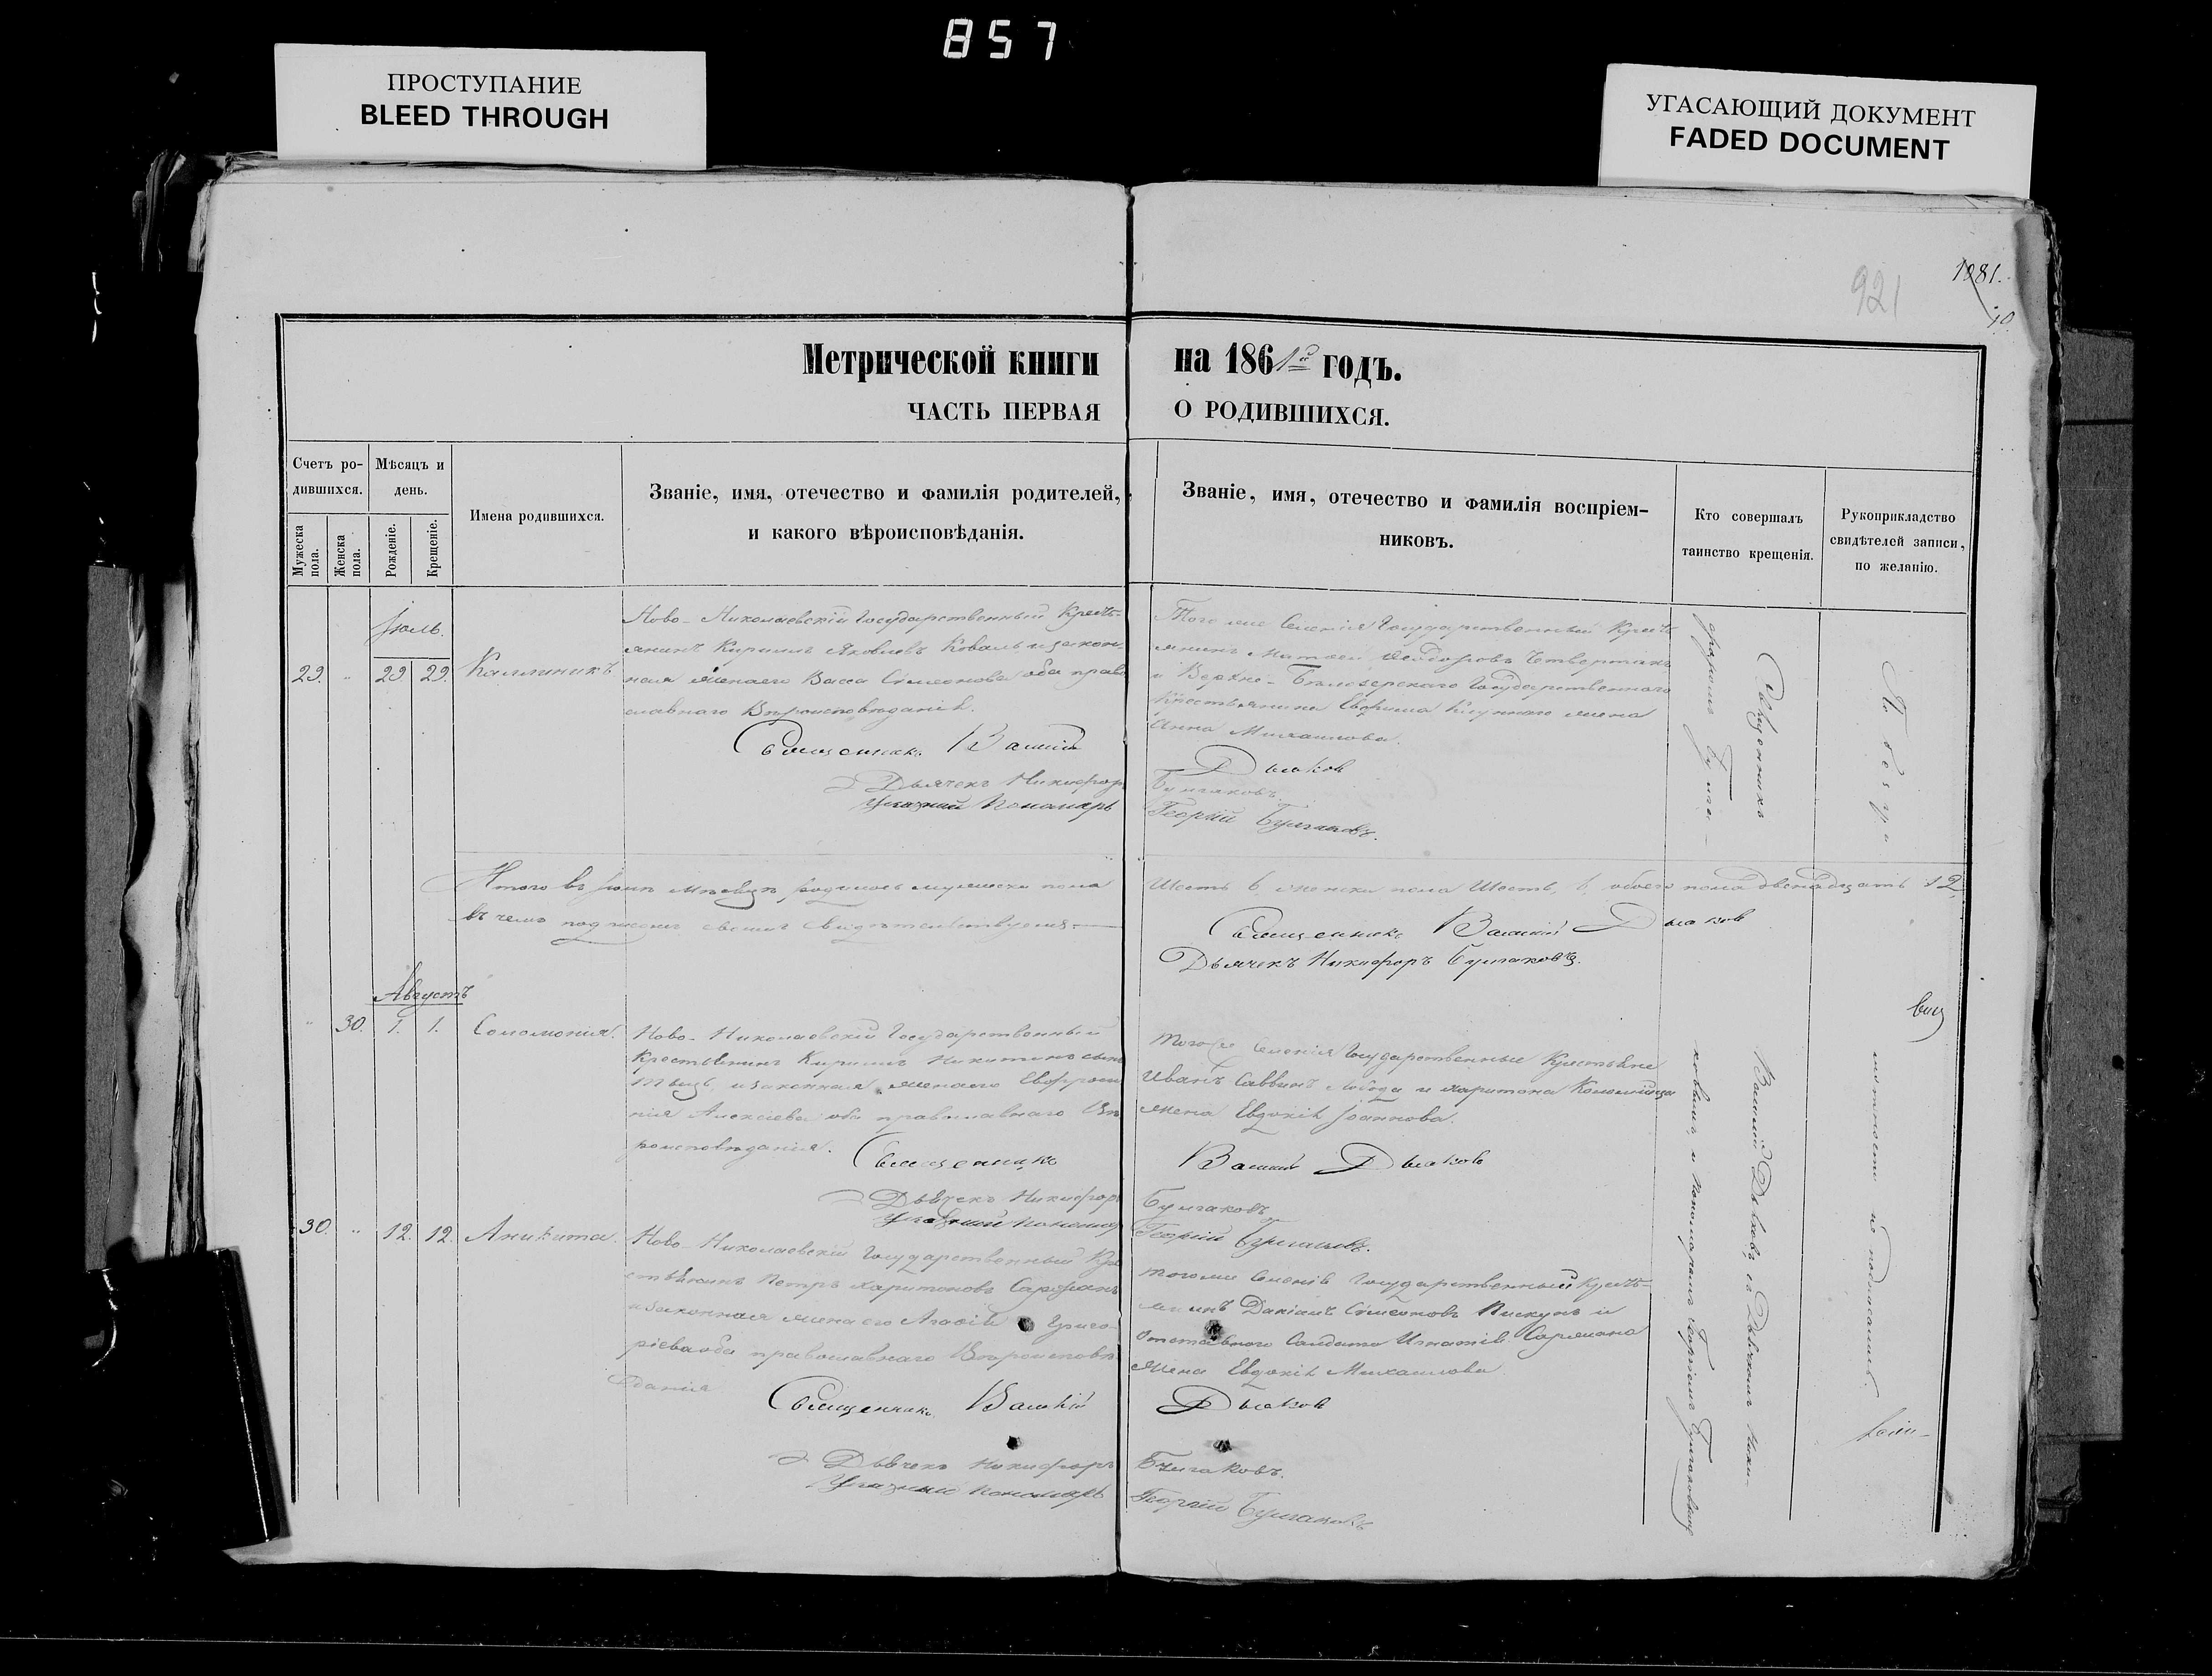 857
ПРОСТУПАНИЕ
BLEED THROUGH
УГАСАЮЩИЙ ДОКУМЕНТ
FADED DOCUMENT
921
1081.
Метрической книги на 1861 годъ.
ЧАСТЬ ПЕРВАЯ О РОДИВШИХСЯ.
Счетъ ро-
дившихся.
Мужеска
пола.
Женска
пола.
Мѣсяцъ и
день.
Рожденіе.
Крещеніе.
Имена родившихся.
Званіе, имя, отечество и фамилія родителей,
и какого вѣроисповѣданія.
Званіе, имя, отечество и фамилія воспріем-
никовъ.
Кто совершалъ
таинство крещенія.
Рукоприкладство
свидѣтелей записи,
по желанію.
Іюль.
29. 29 29. Каллиникъ
Ново-Николаевскій Государственный Кресть-
янинъ Кириллъ Яковлевъ Коваль и закон-
ная жена его Васса Сѵмеонова оба право
славнаго Вѣроисповѣданія.
Священникъ Василій
Дьячекъ Никифоръ
Указный Пономарь
Того же Селенія Государственный Кресть
янинъ Матѳей Ѳеодоровъ
и Верхне-Бѣлозерскаго Государственного
Крестьянина Евфима жена
Анна Михаилова.
Дьяков
Булгаковъ.
Георгій Булгаковъ.
Итого въ Іюлѣ мѣсяцѣ родилось мужеска пола
Шесть 6 женска пола Шесть, 6, обоего пола двенадцать 12
въ чемъ подписомъ своимъ свидѣтельствуемъ
Священникъ Василій Дьяков
Дьячекъ Никифоръ Булгаковъ.
Августъ
30. 1. 1. Соломонія.
Ново-Николаевскій Государственный
Крестьянинъ Кириллъ Никитинъ сынъ
и законная жена его Евфроси
нія Алексіева оба православнаго Вѣ
роисповѣданія.
Священникъ
Дьячекъ Никифоръ
Указный Пономарь
Того же Селенія Государственные Крестьяне
Иванъ Саввинъ Лобода и Харитона Коломійца
жена Евдокія Іоаннова.
Василій Дьяков
Булгаковъ
Георгій Булгаковъ.
30. 12. 12. Аникита.
Ново-Николаевскій Государственный Кре
стьянинъ Петръ Харитоновъ
и законная жена его Агафія Григо-
ріева оба православнаго Вѣроисповѣ
данія
Священникъ Василій
Дьячекъ Никифоръ
Указный Пономарь
Того же Селенія Государственный Кресть-
янинъ Даніилъ Сѵмеоновъ Пискунъ и
Отставного Солдата Игнатія
жена Евдокія Михаилова.
Дьяков
Булгаковъ.
Георгій Булгаковъ
Священникъ
Василій Дьяковъ съ Дьячкомъ Ники-
форомъ Булга-
ковымъ и Пономаремъ Георгіемъ Булгаковымъ
По безгра
мотности не подписались.